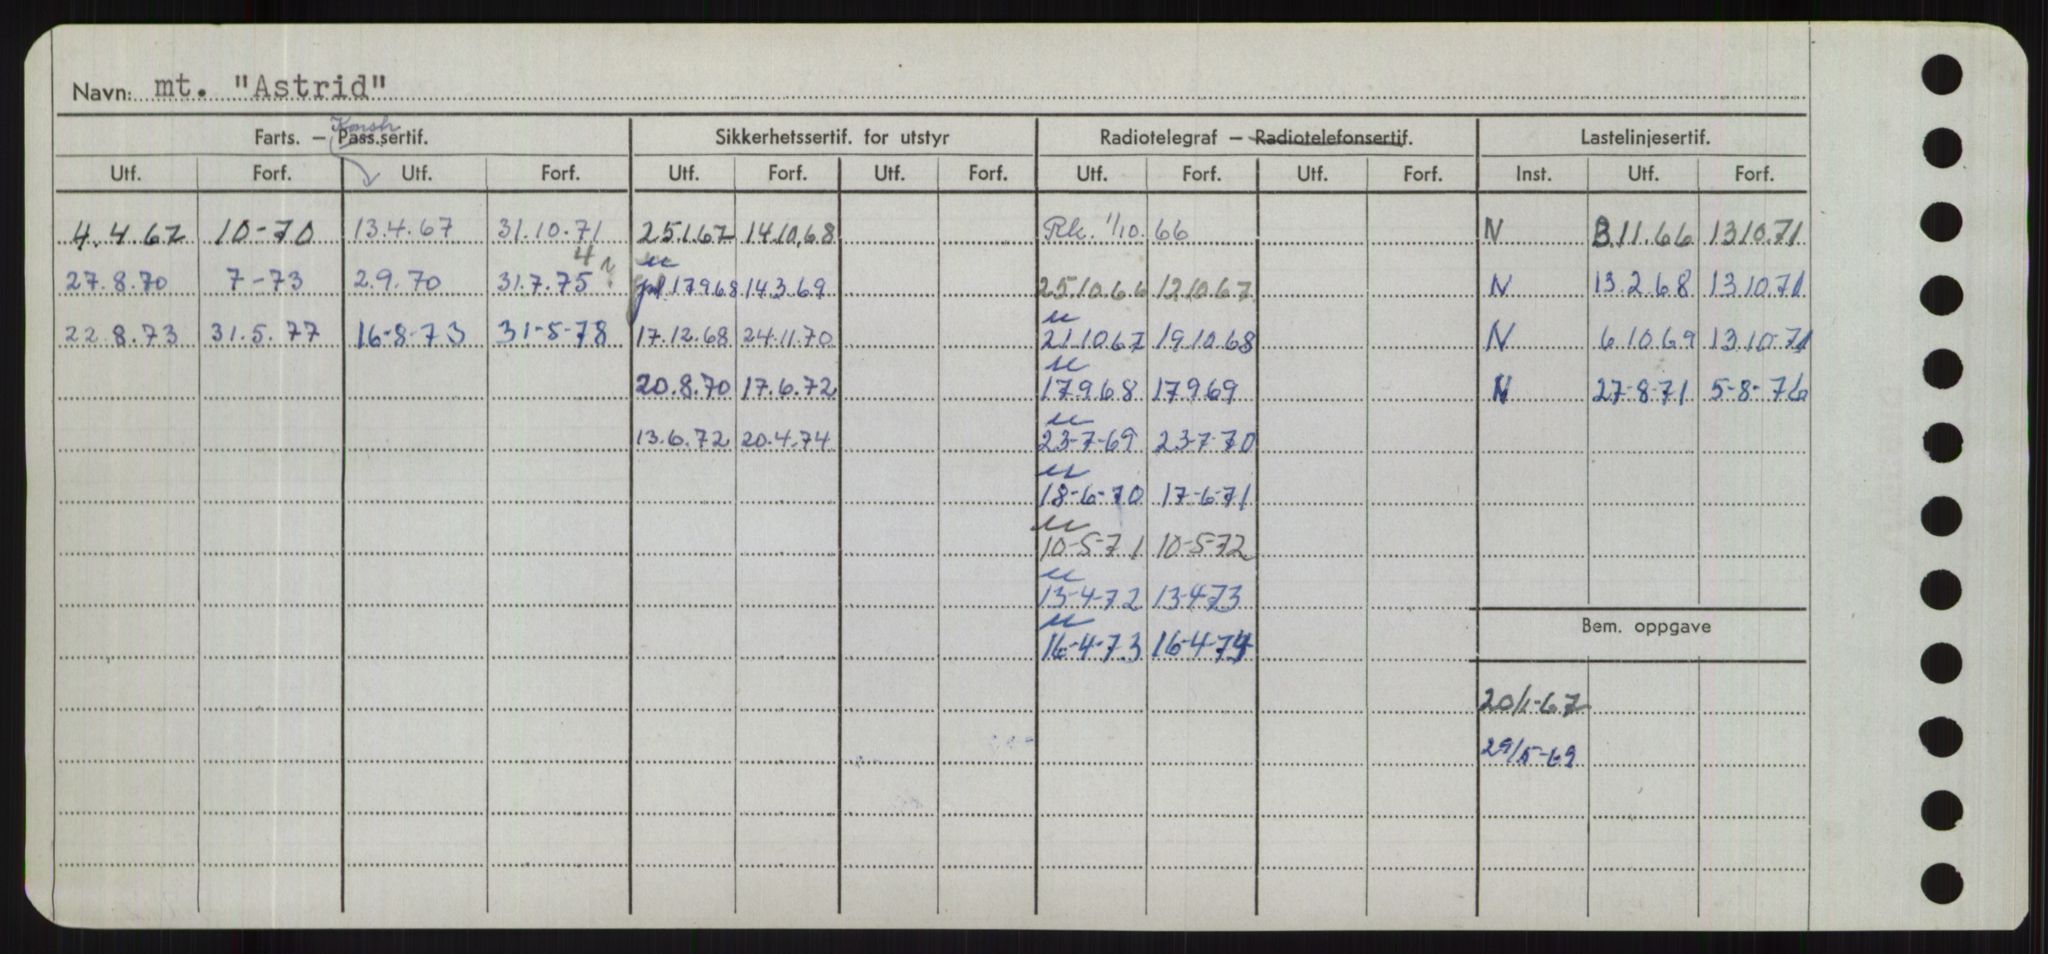 Navn: mt. "Astrid"
Farts. – Pass.sertif. Konstr. Sikkerhetssertif. for utstyr Radiotelegraf – Radiotelefonsertif. Lastelinjesertif.
Utf. Forf. Utf. Forf. Utf. Forf. Utf. Forf. Utf. Forf. Utf. Forf. Inst. Utf. Forf.
4.4.67 10-70 13.4.67 31.10.71 25.1.67 14.10.68 Rk. 1/10.66 N 3.11.66 13.10.71
27.8.70 7-73 2.9.70 31.7.75 4 17.9.68 14.3.69 25.10.66 12.10.67 N 13.2.68 13.10.71
22.8.73 31.5.77 16-8-73 31-5-78 17.12.68 24.11.70 21.10.67 19.10.68 N 6.10.69 13.10.71
20.8.70 17.6.72 17.9.68 17.9.69 N 27-8-71 5-8-76
13.6.72 20.4.74 23-7-69 23-7-70
18-6-70 17-6-71
10-5-71 10-5-72
13-4-72 13-4-73
Bem. oppgave
16-4-73 16-4-74
20/1-67
29/5-69